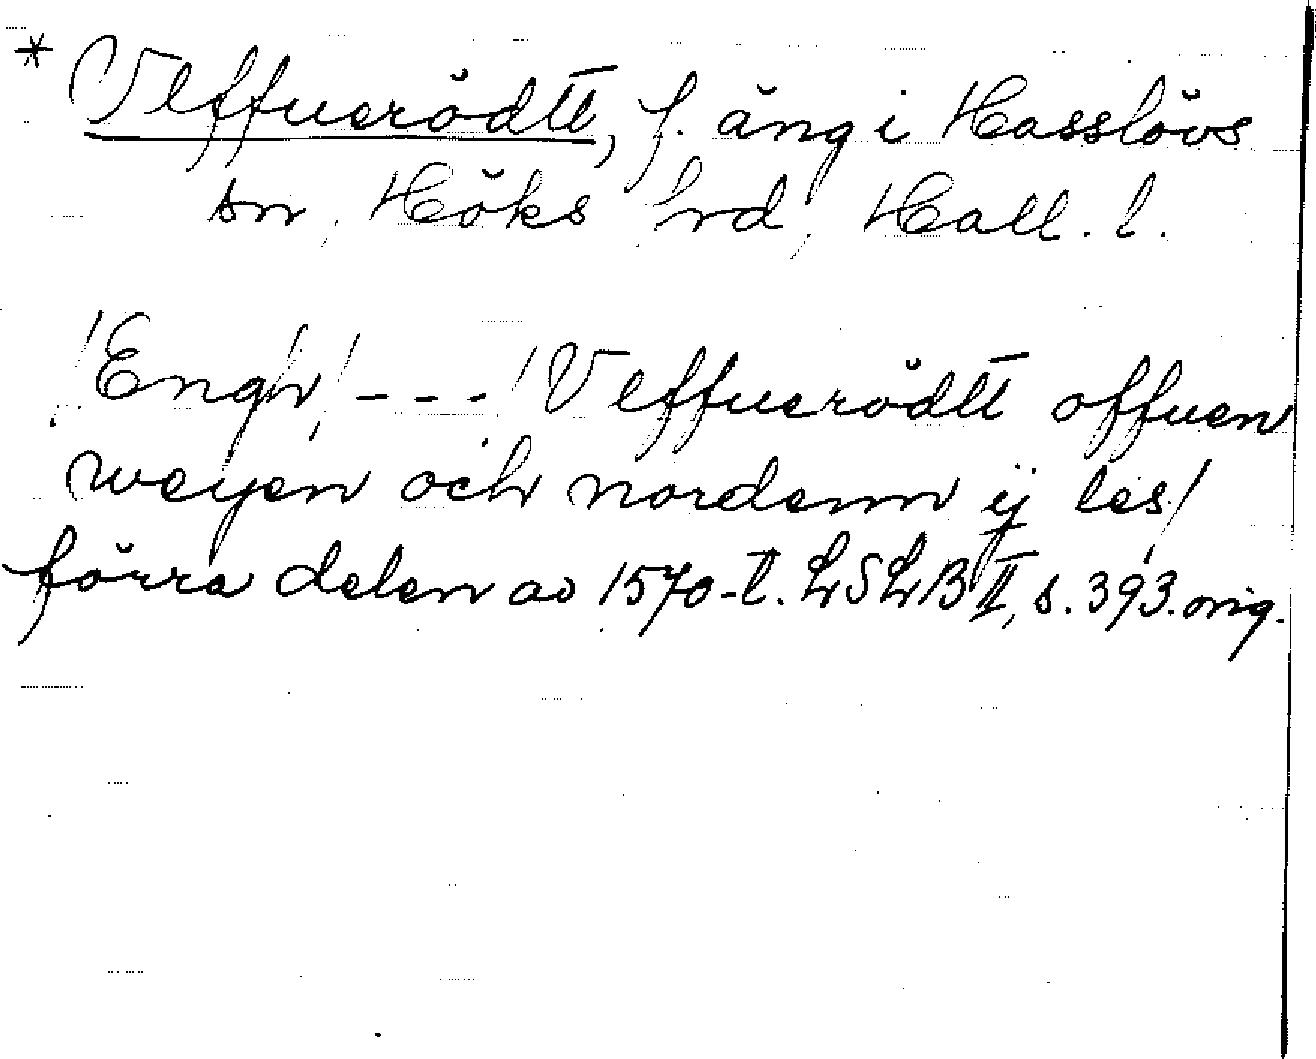 * Veffuerödtt, f. äng i Hasslövs
sn, Höks hrd, Hall. l.
/Engh/ - - - /Veffuerödtt offuen
weyen och nordenn ij les/
förra delen av 1570-t. LSLB II, s. 393. orig.